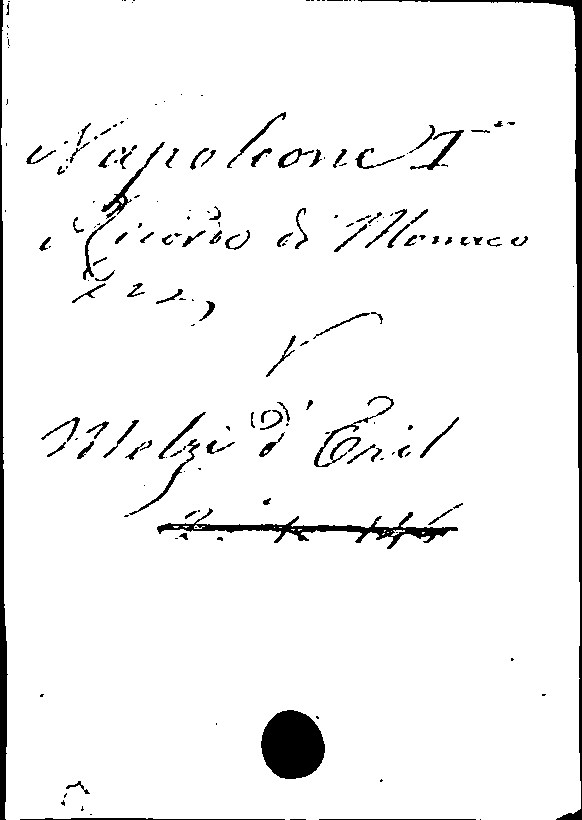 Napoleone I°
Ricordo di Monaco
V
Melzi d'Eril